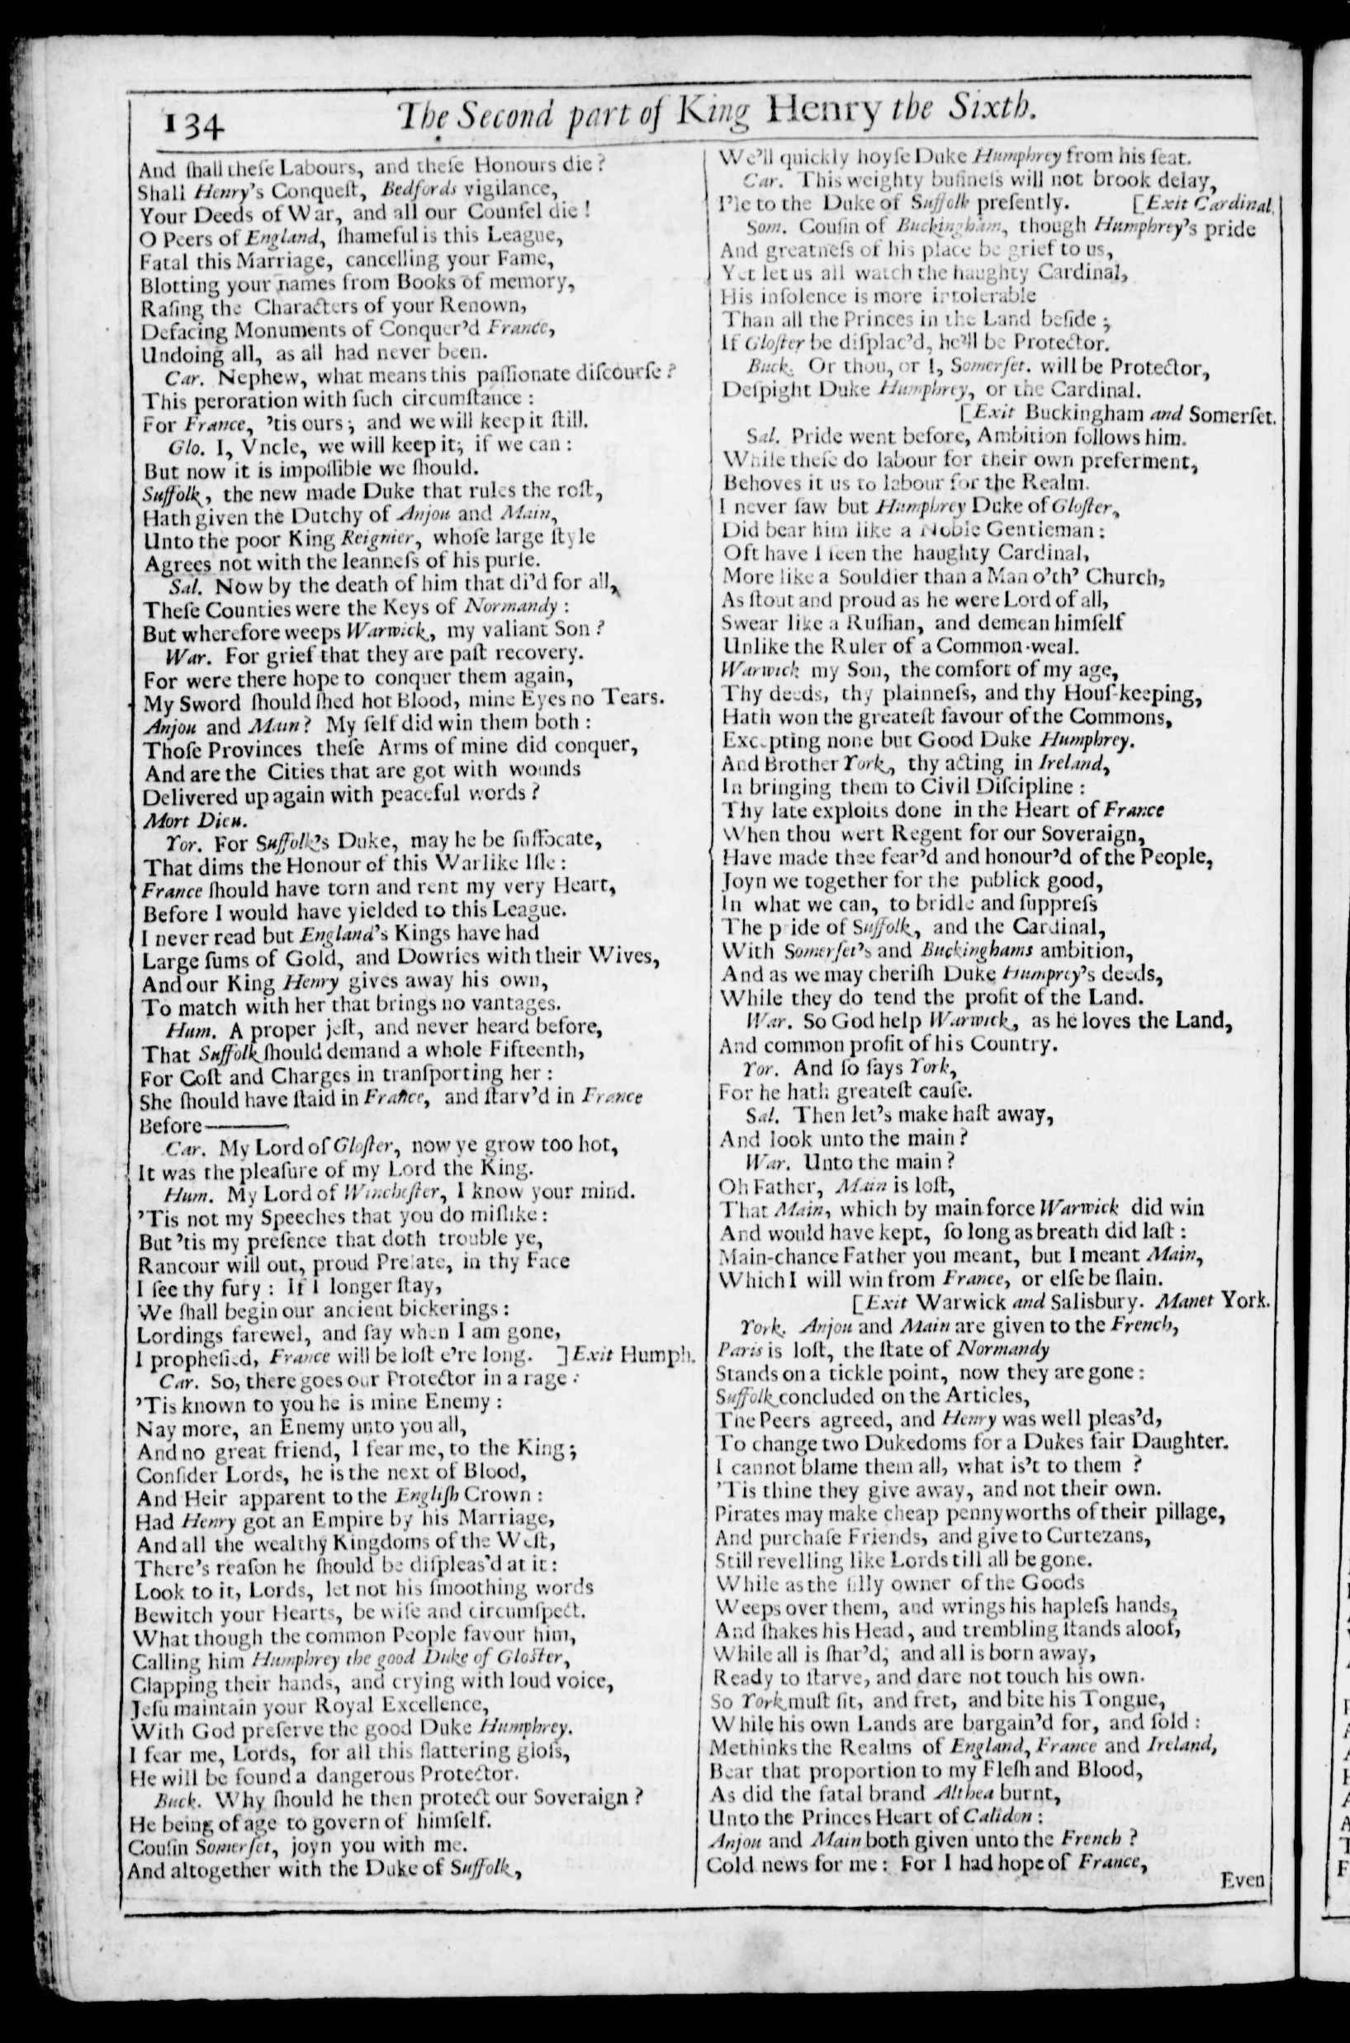 134
The Second part of King Henry the Sixth.
And ſhall theſe Labours, and theſe Honours die?
Shall Henry's Conqueſt, Bedfords vigilance,
Your Deeds of War, and all our Counſel die!
O Peers of England, ſhameful is this League,
Fatal this Marriage, cancelling your Fame,
Blotting your names from Books of memory,
Raſing the Characters of your Renown,
Defacing Monuments of Conquer'd France,
Undoing all, as all had never been.
Car. Nephew, what means this paſſionate diſcourſe?
This peroration with ſuch circumſtance:
For France, 'tis ours; and we will keep it ſtill.
Glo. I, Vncle, we will keep it; if we can:
But now it is impoſſible we ſhould.
Suffolk, the new made Duke that rules the roſt,
Hath given the Dutchy of Anjou and Main,
Unto the poor King Reignier, whoſe large ſtyle
Agrees not with the leanneſs of his purſe.
Sal. Now by the death of him that di'd for all,
Theſe Counties were the Keys of Normandy:
But wherefore weeps Warwick, my valiant Son?
War. For grief that they are paſt recovery.
For were there hope to conquer them again,
My Sword ſhould ſhed hot Blood, mine Eyes no Tears.
Anjou and Main? My ſelf did win them both:
Thoſe Provinces theſe Arms of mine did conquer,
And are the Cities that are got with wounds
Delivered up again with peaceful words?
Mort Dieu.
Yor. For Suffolk's Duke, may he be ſuffocate,
That dims the Honour of this Warlike Iſle:
France ſhould have torn and rent my very Heart,
Before I would have yielded to this League.
I never read but England's Kings have had
Large ſums of Gold, and Dowries with their Wives,
And our King Henry gives away his own,
To match with her that brings no vantages.
Hum. A proper jeſt, and never heard before,
That Suffolk ſhould demand a whole Fifteenth,
For Coſt and Charges in tranſporting her:
She ſhould have ſtaid in France, and ſtarv'd in France
Before———
Car. My Lord of Gloſter, now ye grow too hot,
It was the pleaſure of my Lord the King.
Hum. My Lord of Wincheſter, I know your mind.
'Tis not my Speeches that you do miſlike:
But 'tis my preſence that doth trouble ye,
Rancour will out, proud Prelate, in thy Face
I ſee thy fury: If I longer ſtay,
We ſhall begin our ancient bickerings:
Lordings farewel, and ſay when I am gone,
I propheſied, France will be loſt e're long. ]Exit Humph.
Car. So, there goes our Protector in a rage:
'Tis known to you he is mine Enemy:
Nay more, an Enemy unto you all,
And no great friend, I fear me, to the King;
Conſider Lords, he is the next of Blood,
And Heir apparent to the Engliſh Crown:
Had Henry got an Empire by his Marriage,
And all the wealthy Kingdoms of the Weſt,
There's reaſon he ſhould be diſpleas'd at it:
Look to it, Lords, let not his ſmoothing words
Bewitch your Hearts, be wiſe and circumſpect.
What though the common People favour him,
Calling him Humphrey the good Duke of Gloſter,
Clapping their hands, and crying with loud voice,
Jeſu maintain your Royal Excellence,
With God preſerve the good Duke Humphrey.
I fear me, Lords, for all this flattering gloſs,
He will be found a dangerous Protector.
Buck. Why ſhould he then protect our Soveraign?
He being of age to govern of himſelf.
Couſin Somerſet, joyn you with me.
And altogether with the Duke of Suffolk,
We'll quickly hoyſe Duke Humphrey from his ſeat.
Car. This weighty buſineſs will not brook delay,
I'le to the Duke of Suffolk preſently. [Exit Cardinal.
Som. Couſin of Buckingham, though Humphrey's pride
And greatneſs of his place be grief to us,
Yet let us all watch the haughty Cardinal,
His inſolence is more intolerable
Than all the Princes in the Land beſide;
If Gloſter be diſplac'd, he'll be Protector.
Buck. Or thou, or I, Somerſet. will be Protector,
Deſpight Duke Humphrey, or the Cardinal.
[Exit Buckingham and Somerſet.
Sal. Pride went before, Ambition follows him.
While theſe do labour for their own preferment,
Behoves it us to labour for the Realm.
I never ſaw but Humphrey Duke of Gloſter,
Did bear him like a Noble Gentleman:
Oft have I ſeen the haughty Cardinal,
More like a Souldier than a Man o'th' Church,
As ſtout and proud as he were Lord of all,
Swear like a Ruffian, and demean himſelf
Unlike the Ruler of a Common-weal.
Warwick my Son, the comfort of my age,
Thy deeds, thy plainneſs, and thy Houſ-keeping,
Hath won the greateſt favour of the Commons,
Excepting none but Good Duke Humphrey.
And Brother York, thy acting in Ireland,
In bringing them to Civil Diſcipline:
Thy late exploits done in the Heart of France
When thou wert Regent for our Soveraign,
Have made thee fear'd and honour'd of the People,
Joyn we together for the publick good,
In what we can, to bridle and ſuppreſs
The pride of Suffolk, and the Cardinal,
With Somerſet's and Buckinghams ambition,
And as we may cheriſh Duke Humprey's deeds,
While they do tend the profit of the Land.
War. So God help Warwick, as he loves the Land,
And common profit of his Country.
Yor. And ſo ſays York,
For he hath greateſt cauſe.
Sal. Then let's make haſt away,
And look unto the main?
War. Unto the main?
Oh Father, Main is loſt,
That Main, which by main force Warwick did win
And would have kept, ſo long as breath did laſt:
Main-chance Father you meant, but I meant Main,
Which I will win from France, or elſe be ſlain.
[Exit Warwick and Salisbury. Manet York.
York. Anjou and Main are given to the French,
Paris is loſt, the ſtate of Normandy
Stands on a tickle point, now they are gone:
Suffolk concluded on the Articles,
The Peers agreed, and Henry was well pleas'd,
To change two Dukedoms for a Dukes fair Daughter.
I cannot blame them all, what is't to them?
'Tis thine they give away, and not their own.
Pirates may make cheap pennyworths of their pillage,
And purchaſe Friends, and give to Curtezans,
Still revelling like Lords till all be gone.
While as the ſilly owner of the Goods
Weeps over them, and wrings his hapleſs hands,
And ſhakes his Head, and trembling ſtands aloof,
While all is ſhar'd; and all is born away,
Ready to ſtarve, and dare not touch his own.
So York muſt ſit, and fret, and bite his Tongue,
While his own Lands are bargain'd for, and ſold:
Methinks the Realms of England, France and Ireland,
Bear that proportion to my Fleſh and Blood,
As did the fatal brand Althea burnt,
Unto the Princes Heart of Calidon:
Anjou and Main both given unto the French?
Cold news for me: For I had hope of France,
Even